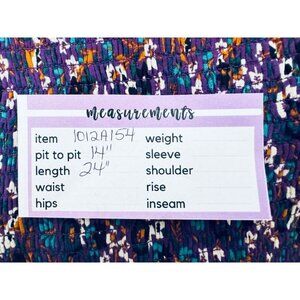 measurements
item 1012A154 weight
pit to pit 14" sleeve
length 24" shoulder
waist rise
hips inseam